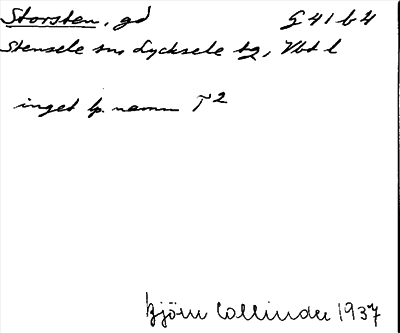 Storsten, gd G 41 b 4
Stensele sn, Lycksele tg, Vbtn l
inget lp. namn T2
Björn Collinder 1937